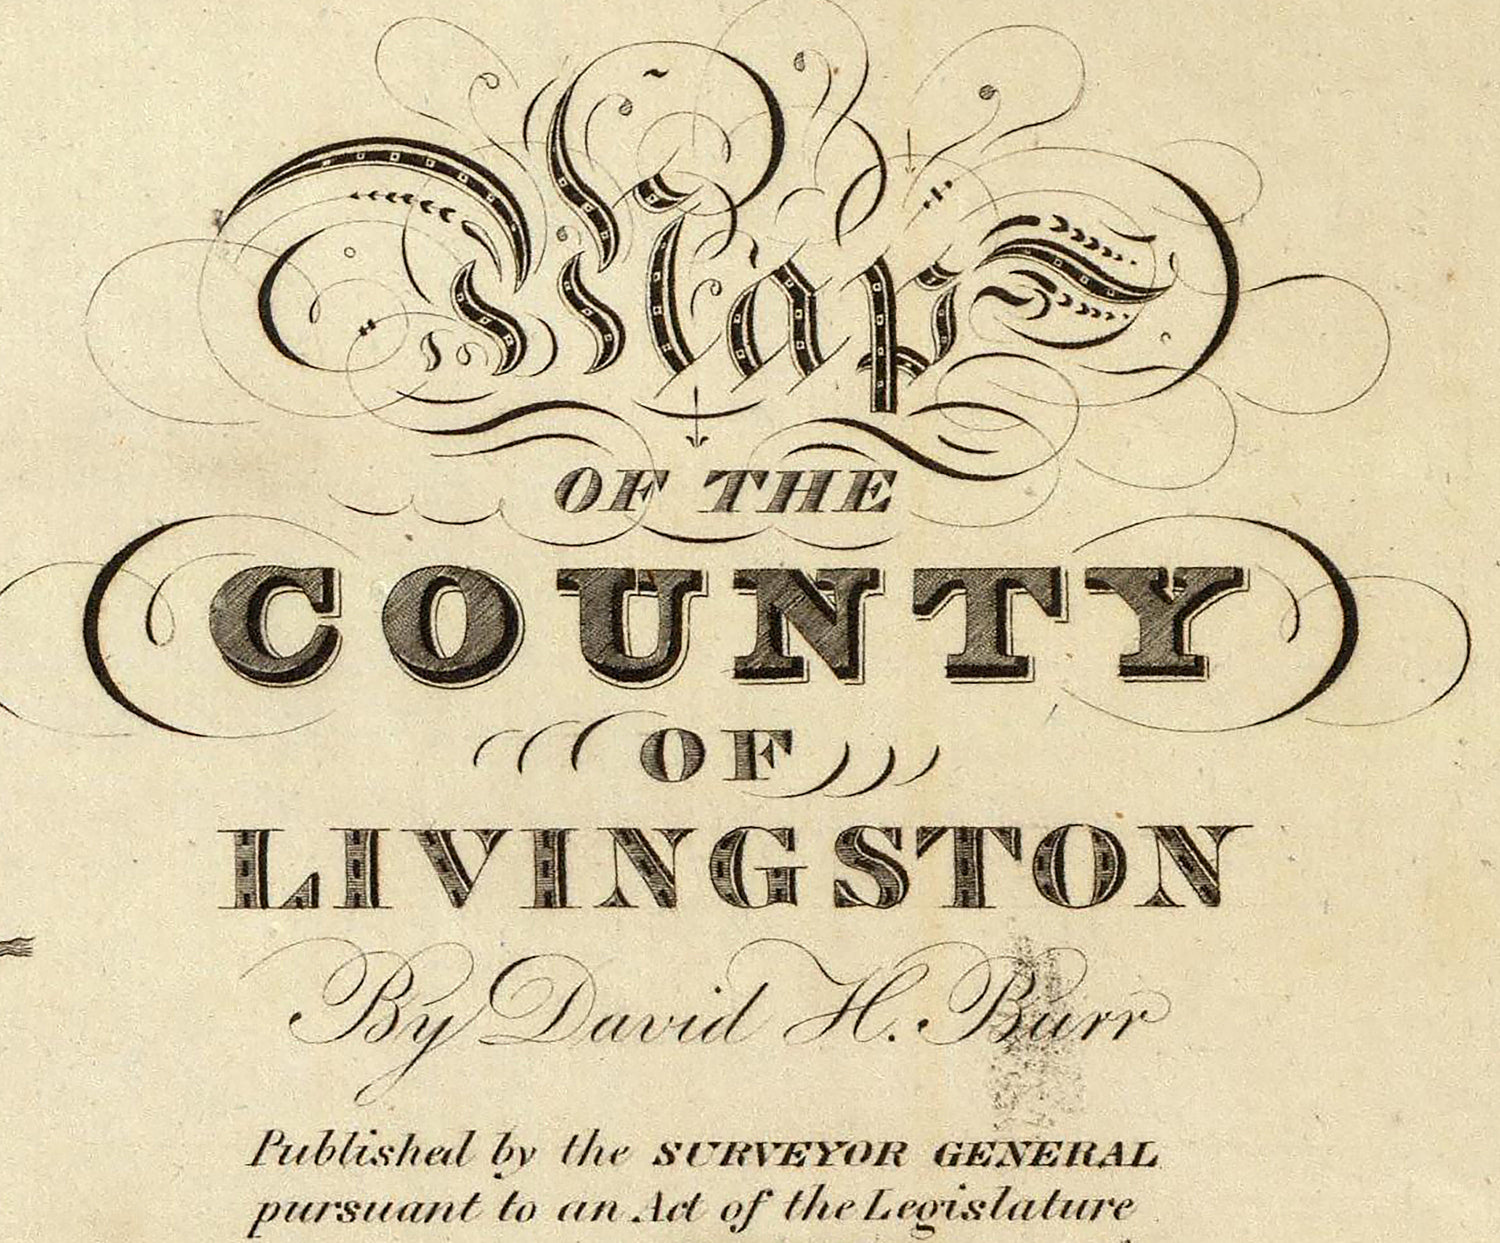 Map
OF THE
COUNTY
OF
LIVINGSTON
By David H. Burr
Published by the SURVEYOR GENERAL
pursuant to an Act of the Legislature